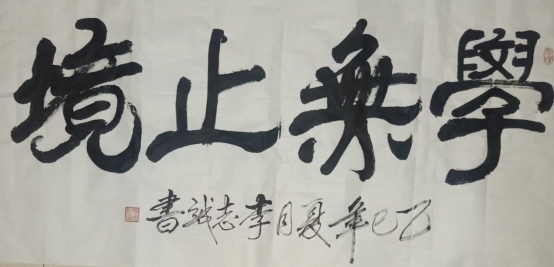 學無止境
乙巳年夏月李志誠書